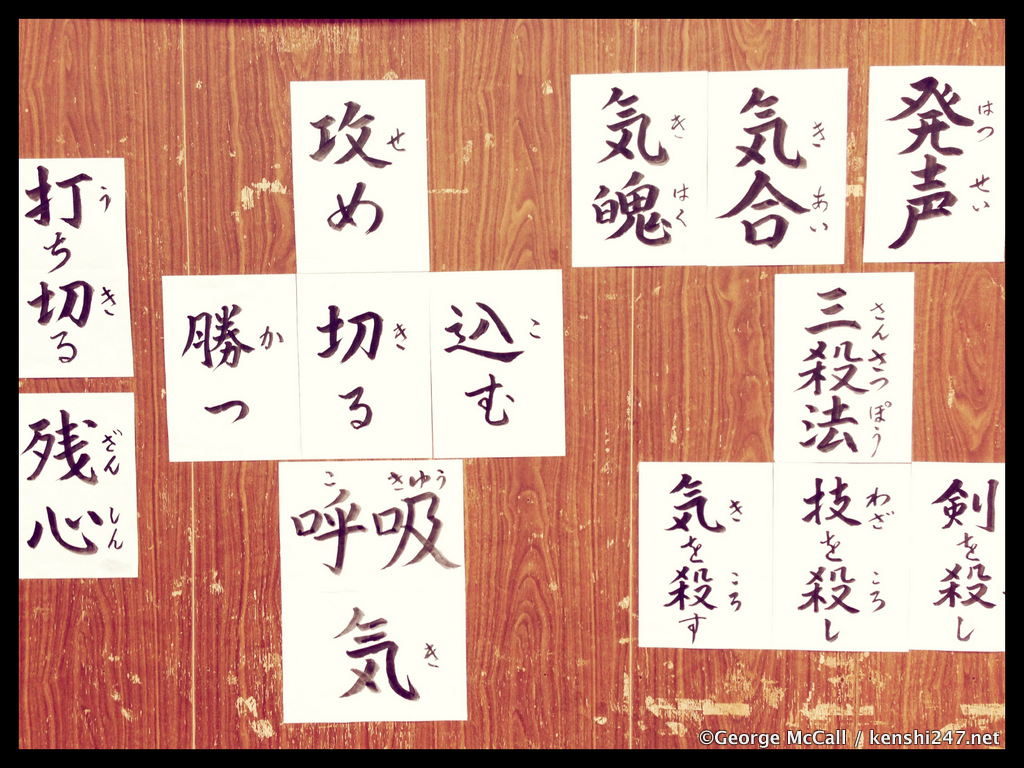 発声
はつせい
気合
きあい
気魄
きはく
三殺法
さんさつぽう
剣を殺し
技を殺し
わざ ころ
気を殺す
き ころ
攻め
せ
込む
こ
切る
き
勝つ
か
呼吸
こきゆう
気
き
打ち切る
う き
残心
ざんしん
©George McCall / kenshi247.net